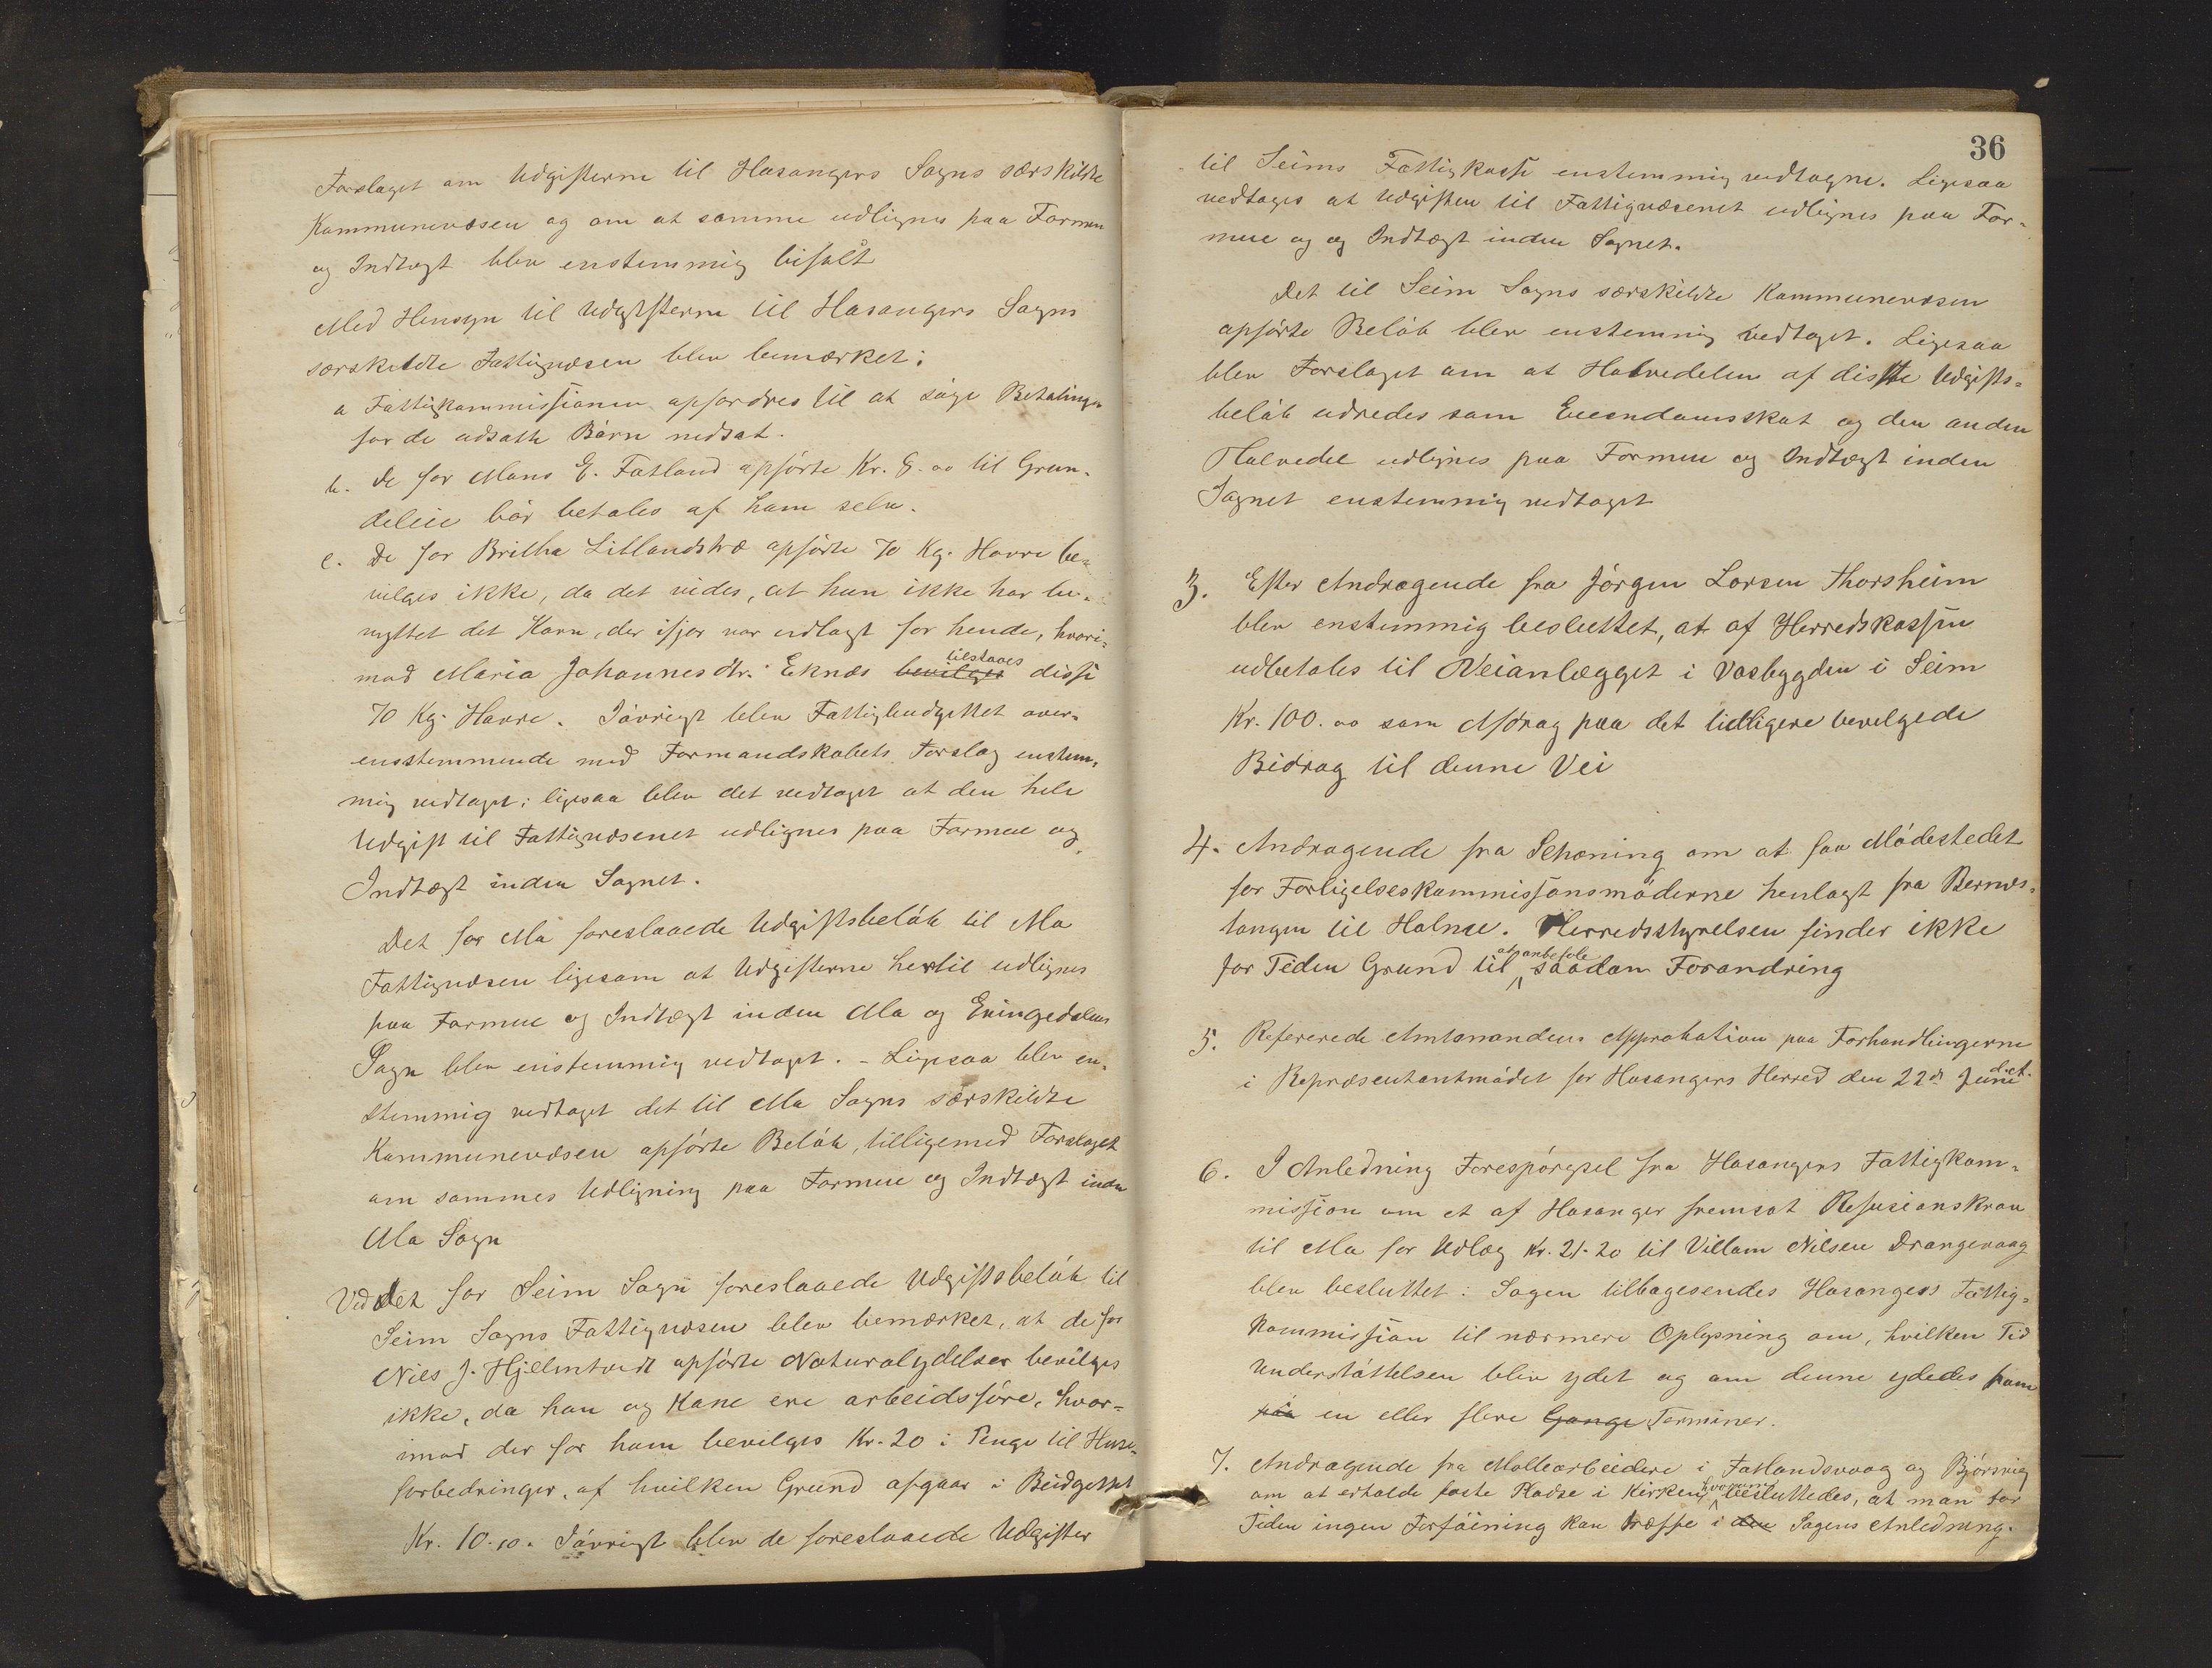 Forslaget om Udgifterne til Hosangers Sogns særskilte
Kommunevæsen og om at samme udlignes paa Formue
og Indtægt blev enstemmig bifalt
Med Hensyn til Udgifterne til Hosangers Sogns
særskildte Fattigvæsen blev bemærket:
a Fattigkommissionen opfordres til at søge Betalingen
for de udsatte Børn nedsat.
b. De for Mons E. Fatland opførte Kr. 8.00 til Grun-
deleie bør betales af ham selv.
c. De for Britha Litlandstræ opførte 70 Kg. Havre be-
vilges ikke, da det vides, at hun ikke har be-
nyttet det Korn, der ifjor var udlagt for hende, hvori-
mod Maria Johannesdtr. Eknæs bevilges tilstaaes disse
70 Kg. Havre. Iøvrigt blev Fattigbudgettet over-
ensstemmende med Formandskabets Forslag enstem-
mig vedtaget; ligesaa blev det vedtaget at den hele
Udgift til Fattigvæsenet udlignes paa Formue og
Indtægt inden Sognet.
Det for Mo foreslaaede Udgiftsbeløb til Mo
Fattigvæsen ligesom at Udgifterne hertil udlignes
paa Formue og Indtægt inden Mo og Exingedalens
Sogn blev enstemmig vedtaget. - Ligesaa blev en-
stemmig vedtaget det til Mo Sogns særskildte
Kommunevæsen opførte Beløb, tilligemed Forslaget
om sammes Udligning paa Formue og Indtægt inden
Mo Sogn
Ved det for Seim Sogn foreslaaede Udgiftsbeløb til
Seim Sogns Fattigvæsen blev bemærket, at de for
Niels J. Hjelmtvedt opførte Naturalydelser bevilges
ikke, da han og Kone ere arbeidsføre, hvor-
imod der for ham bevilges Kr. 20 i Penge til Huse-
forbedringer, af hvilken Grund afgaar i Budgettet
Kr. 10.10. Iøvrigt blev de foreslaaede Udgifter
36
til Seims Fattigkasse enstemmig vedtagne. Ligesaa
vedtages at Udgiften til Fattigvæsenet udlignes paa For-
mue og og Indtægt inden Sognet.
Det til Seim Sogns særskildte Kommunevæsen
opførte Beløb blev enstemmig vedtaget. Ligesaa
blev Forslaget om at Halvedelen af disse Udgifts-
beløb udredes som Eiendomsskat og den anden
Halvedel udlignes paa Formue og Indtægt inden
Sognet enstemmig vedtaget
3. Efter Andragende fra Jørgen Larsen Thorsheim
blev enstemmig besluttet, at af Herredskassen
udbetales til Veianlægget i Vosbygden i Seim
Kr. 100.00 som Afdrag paa det tidligere bevelgede
Bidrag til denne Vei
4. Andragende fra Schoning om at faa Mødestedet
for Forligelseskommissonsmøderne henlagt fra Bernes-
tangen til Holme. Herredsstyrelsen finder ikke
for Tiden Grund til at anbefale saadan Forandring
5. Refererede Amtmandens Approbation paa Forhandlingerne
i Repræsentantmødet for Hosangers Herred den 22de Juni d. A.
6. I Anledning Forespørgsel fra Hosangers Fattigkom-
mission om et af Hosanger fremsat Refusionskrav
til Mo for Udlæg Kr. 21.20 til Villam Nilsen Drangevaag
blev besluttet: Sagen tilbagesendes Hosangers Fattig-
Kommission til nærmere Oplysning om, hvilken Tid
Understøttelsen blev ydet og om denne ydedes
paa en eller flere Gange Terminer.
7. Andragende fra Mollearbeidere i Fatlandsvaag og Bjørsvig
om at erholde faste Pladse i Kirken, hvorom besluttedes, at man for
Tiden ingen Forføining kan træffe i den Sagens Anledning.